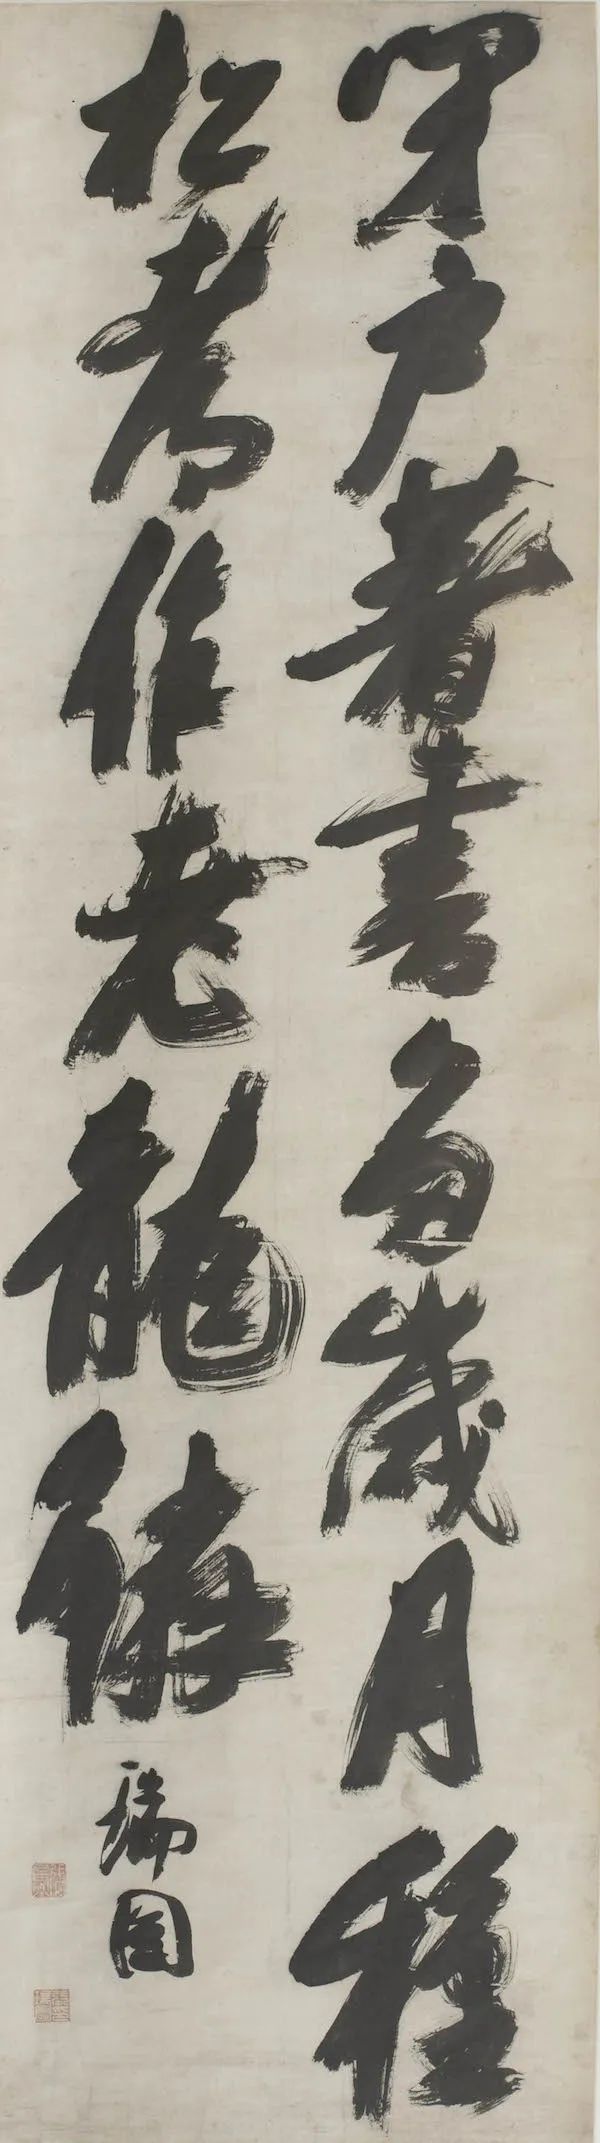 閉戶著書多歲月種
松皆作老龍鱗 瑞圖